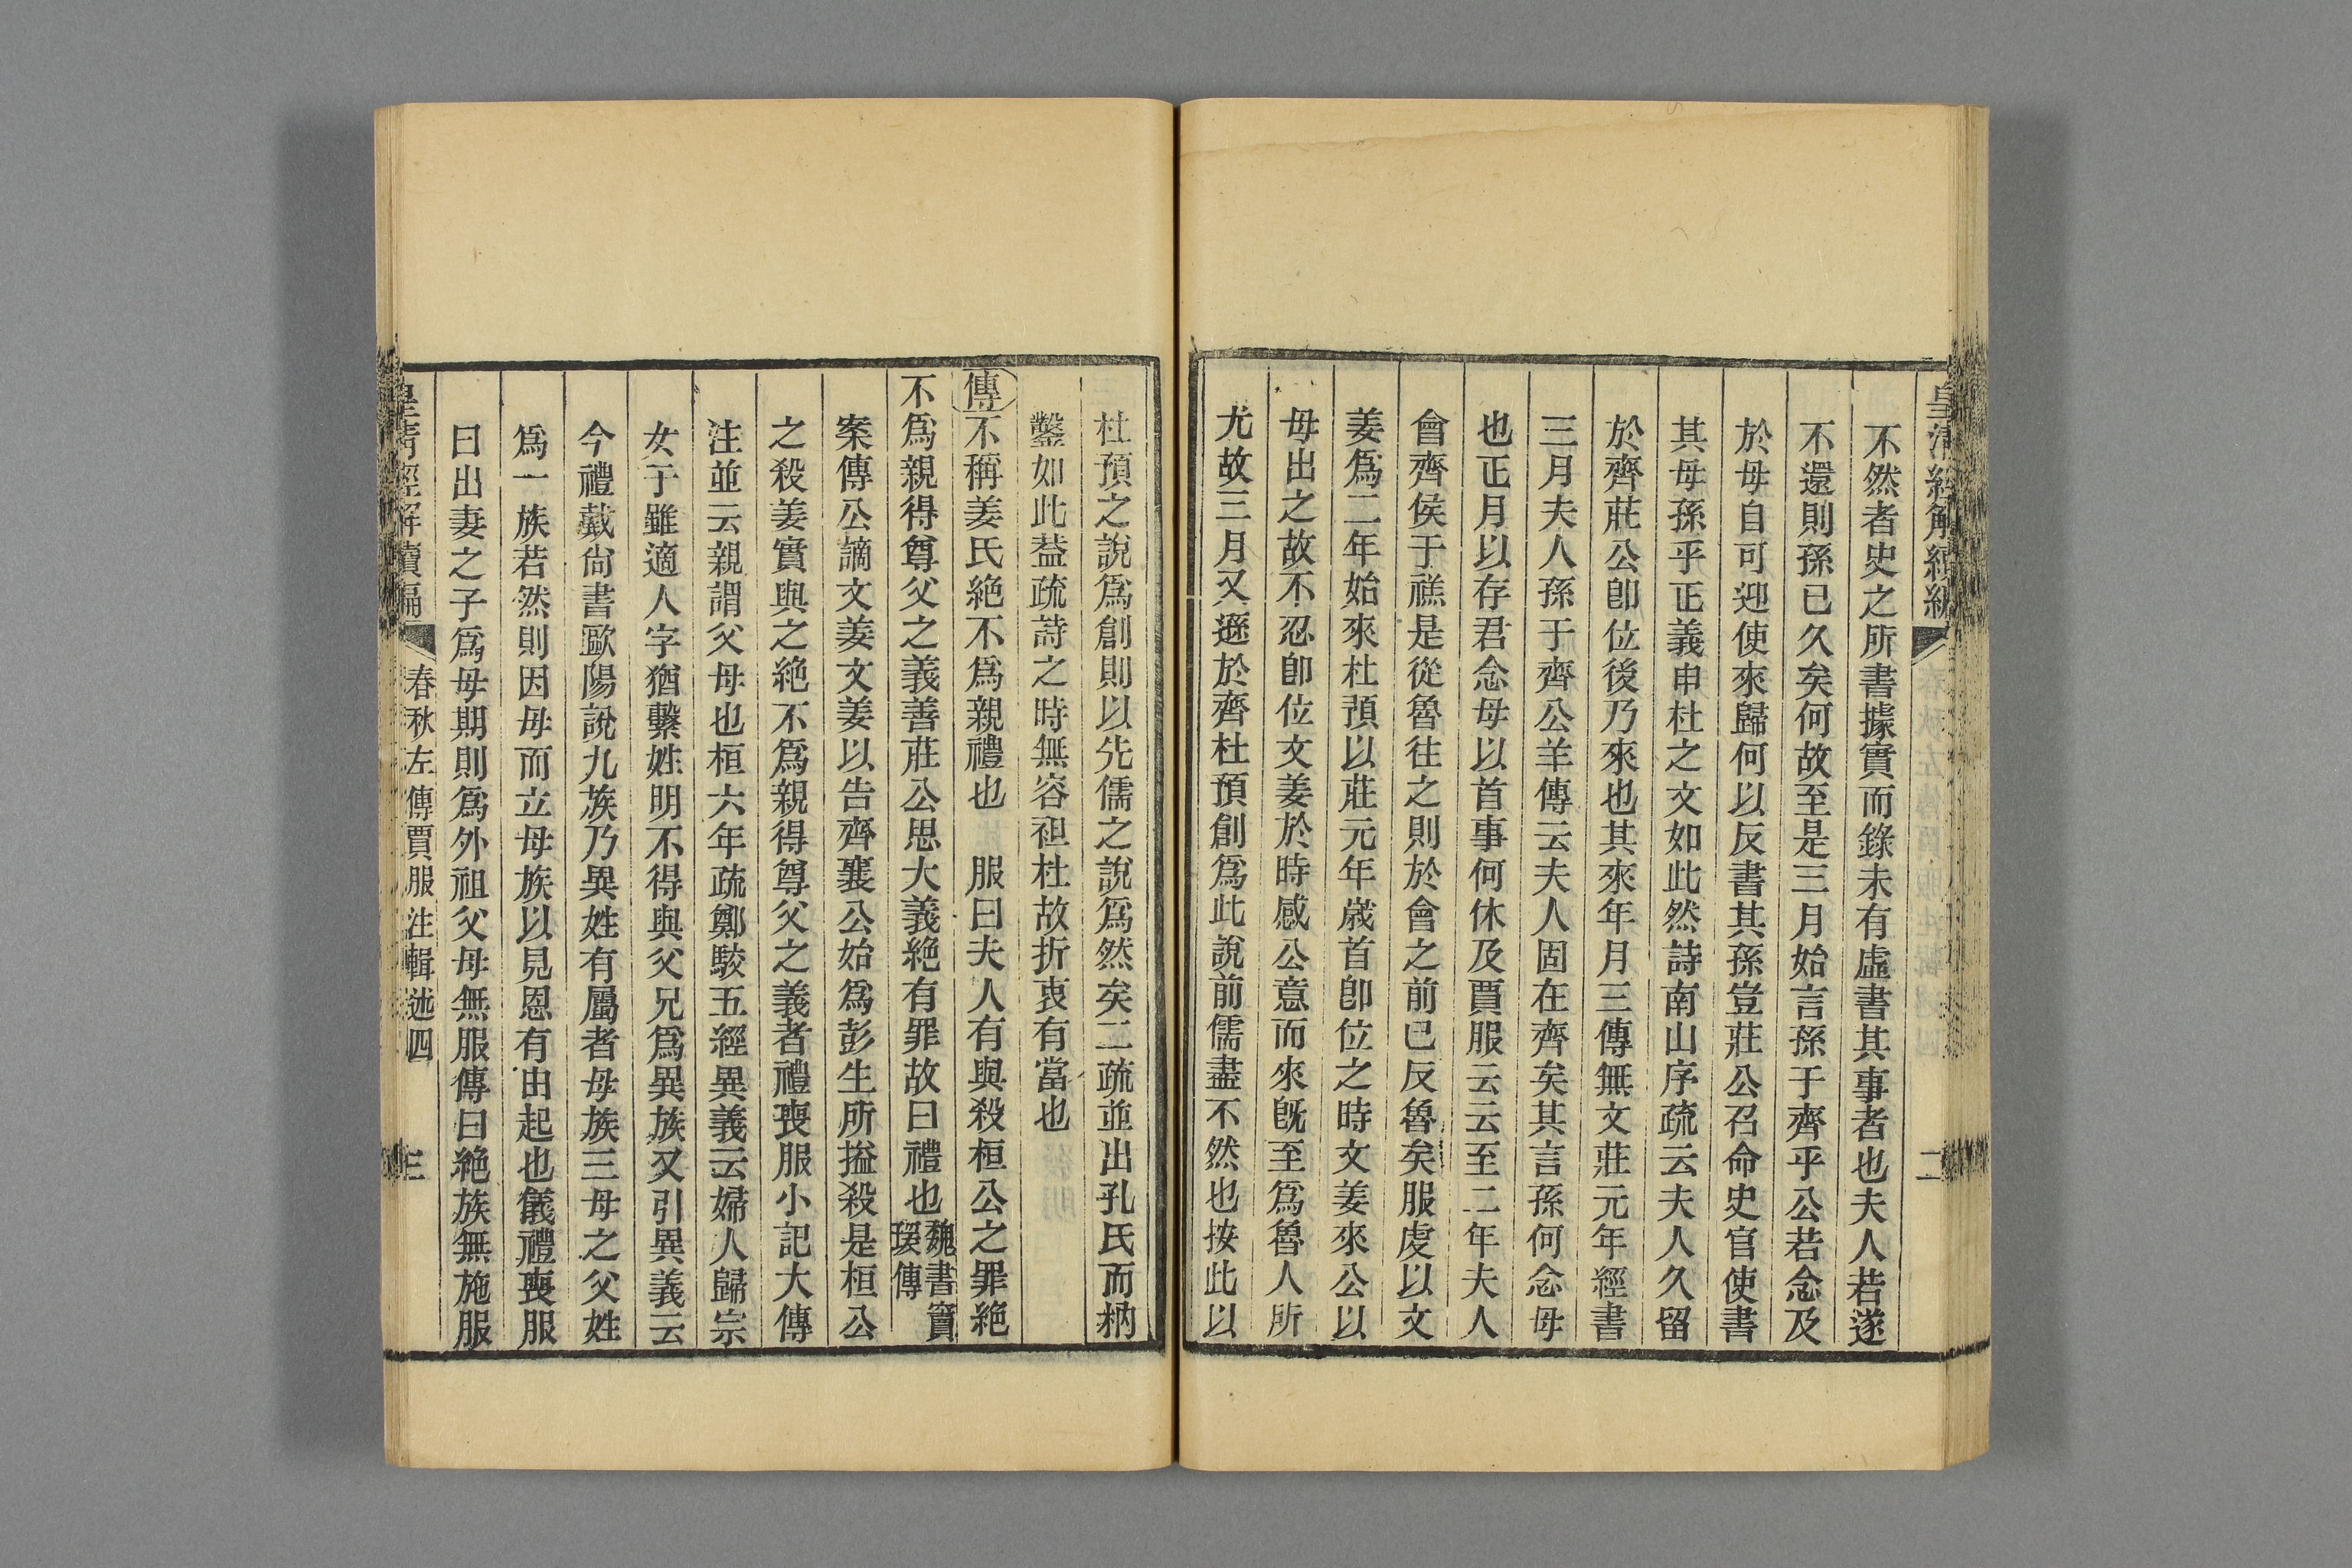 皇清經解續編
二
不然者史之所書據實而錄未有虛書其事者也夫人若遂
不還則孫已久矣何故至是三月始言孫于齊乎公若念及
於母自可迎使來歸何以反書其孫豈莊公召命史官使書
其母孫乎正義申杜之文如此然詩南山序疏云夫人久留
於齊莊公卽位後乃來也其來年月三傳無文莊元年經書
三月夫人孫于齊公羊傳云夫人固在齊矣其言孫何念母
也正月以存君念母以首事何休及賈服云云至二年夫人
會齊侯于禚是從魯往之則於會之前已反魯矣服虔以文
姜爲二年始來杜預以莊元年歲首卽位之時文姜來公以
母出之故不忍卽位文姜於時感公意而來旣至爲魯人所
尤故三月又遜於齊杜預創爲此說前儒盡不然也按此以
杜預之說爲創則以先儒之說爲然矣二疏並出孔氏而枘
鑿如此葢疏詩之時無容袒杜故折衷有當也
傳不稱姜氏絕不爲親禮也 服曰夫人有與殺桓公之罪絕
不爲親得尊父之義善莊公思大義絕有罪故曰禮也魏書竇
瑗傳
案傳公謫文姜文姜以告齊襄公始爲彭生所搚殺是桓公
之殺姜實與之絕不爲親得尊父之義者禮喪服小記大傳
注並云親謂父母也桓六年疏鄭駮五經異義云婦人歸宗
女子雖適人字猶繫姓明不得與父兄爲異族又引異義云
今禮戴尙書歐陽說九族乃異姓有屬者母族三母之父姓
爲一族若然則因母而立母族以見恩有由起也儀禮喪服
曰出妻之子爲母期則爲外祖父母無服傳曰絕族無施服
皇清經解續編 春秋左傳賈服注輯述四
三